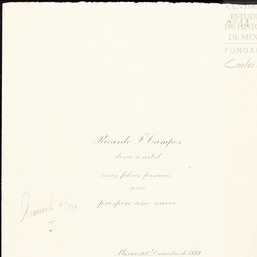 CENTRO
ESTUD
DE HISTO
DE MEX
FUNDA
Carlos
Ricardo F. Campos
desea a usted
muy felices pascuas
y un
próspero año nuevo.
México, D.F. Diciembre de 1939